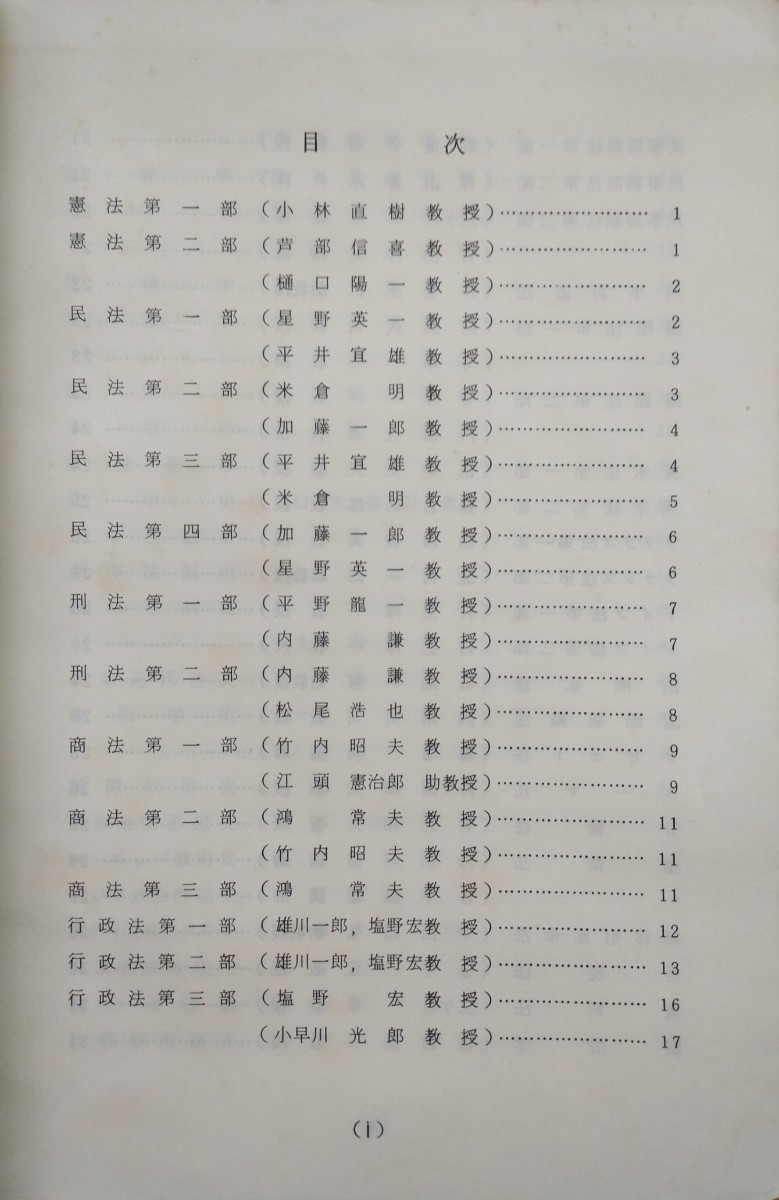 目次
憲法第一部（小林直樹教授）…………………… 1
憲法第二部（芦部信喜教授）…………………… 1
（樋口陽一教授）…………………… 2
民法第一部（星野英一教授）…………………… 2
（平井宜雄教授）…………………… 3
民法第二部（米倉明教授）…………………… 3
（加藤一郎教授）…………………… 4
民法第三部（平井宜雄教授）…………………… 4
（米倉明教授）…………………… 5
民法第四部（加藤一郎教授）…………………… 6
（星野英一教授）…………………… 6
刑法第一部（平野龍一教授）…………………… 7
（内藤謙教授）…………………… 7
刑法第二部（内藤謙教授）…………………… 8
（松尾浩也教授）…………………… 8
商法第一部（竹内昭夫教授）…………………… 9
（江頭憲治郎助教授）…………………… 9
商法第二部（鴻常夫教授）…………………… 11
（竹内昭夫教授）…………………… 11
商法第三部（鴻常夫教授）…………………… 11
行政法第一部（雄川一郎，塩野宏教授）…………………… 12
行政法第二部（雄川一郎，塩野宏教授）…………………… 13
行政法第三部（塩野宏教授）…………………… 16
（小早川光郎教授）…………………… 17
（i）